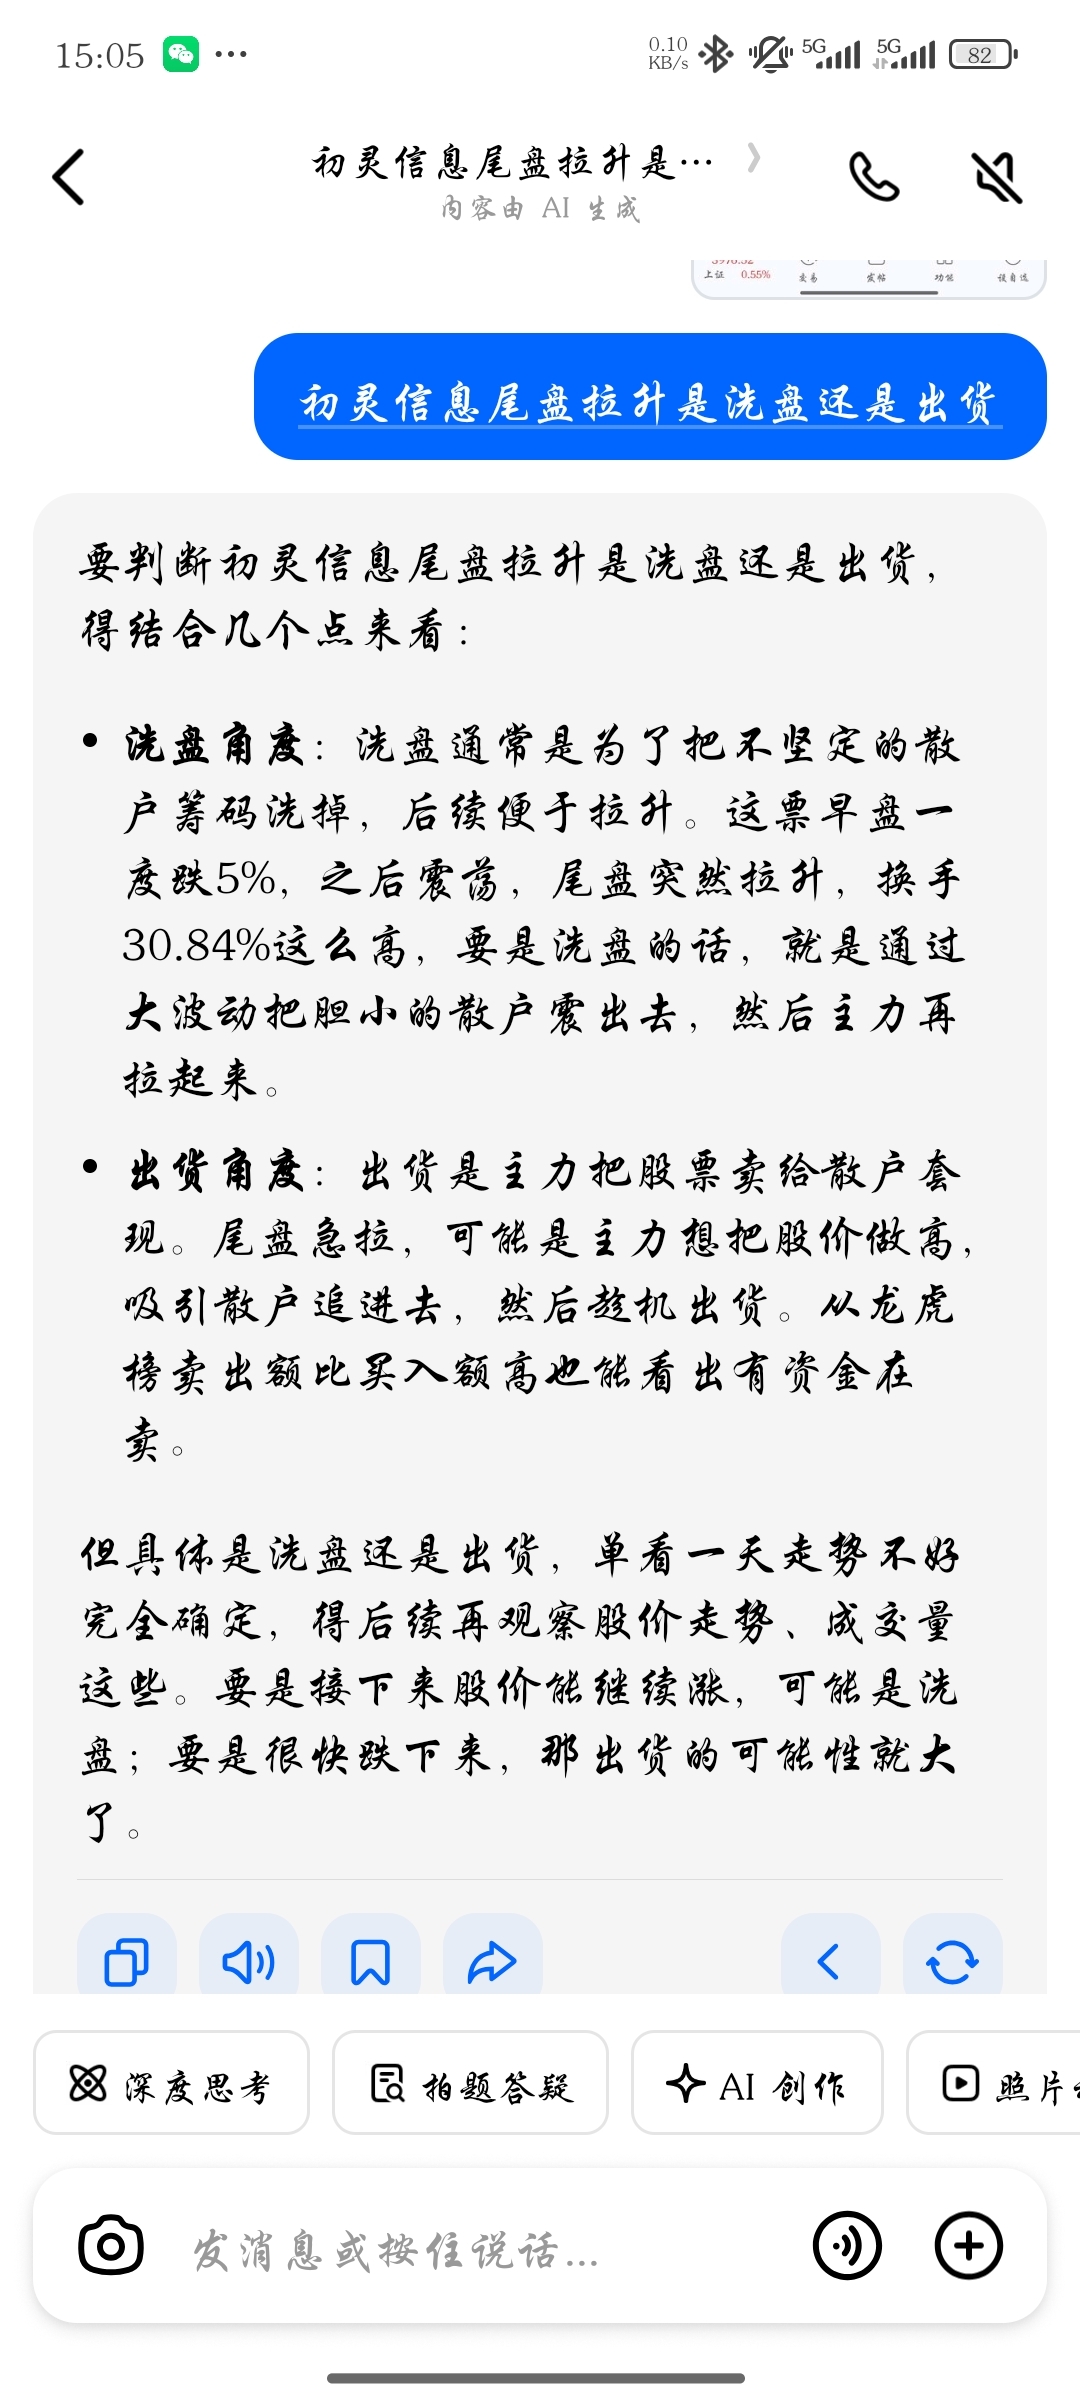 15:05
0.10
KB/s
5G
5G
82
初灵信息尾盘拉升是…
内容由 AI 生成
上证 0.55% 交易 发帖 功能 设自选
初灵信息尾盘拉升是洗盘还是出货
要判断初灵信息尾盘拉升是洗盘还是出货，
得结合几个点来看：
• 洗盘角度：洗盘通常是为了把不坚定的散
户筹码洗掉，后续便于拉升。这票早盘一
度跌5%，之后震荡，尾盘突然拉升，换手
30.84%这么高，要是洗盘的话，就是通过
大波动把胆小的散户震出去，然后主力再
拉起来。
• 出货角度：出货是主力把股票卖给散户套
现。尾盘急拉，可能是主力想把股价做高，
吸引散户追进去，然后趁机出货。从龙虎
榜卖出额比买入额高也能看出有资金在
卖。
但具体是洗盘还是出货，单看一天走势不好
完全确定，得后续再观察股价走势、成交量
这些。要是接下来股价能继续涨，可能是洗
盘；要是很快跌下来，那出货的可能性就大
了。
深度思考 拍题答疑 AI 创作 照片
发消息或按住说话...